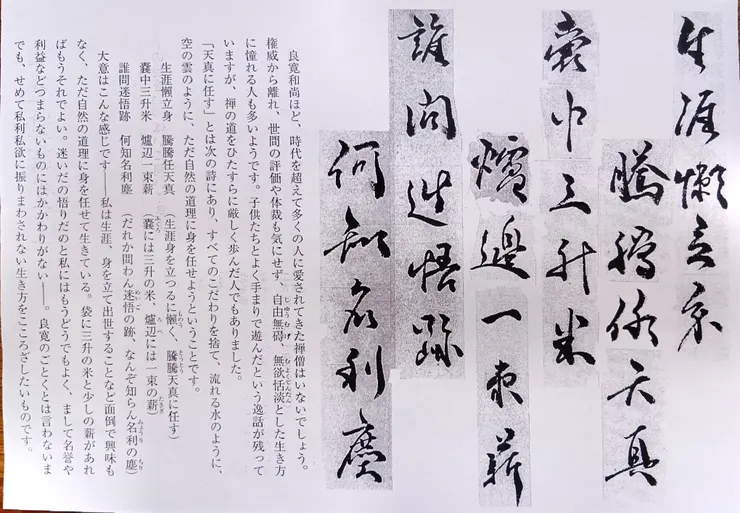 生涯懶立身
騰騰任天真
囊中三升米
爐邊一束薪
誰問迷悟跡
何知名利塵
良寛和尚ほど、時代を超えて多くの人に愛されてきた禅僧はいないでしょう。
権威から離れ、世間の評価や体裁も気にせず、自由無碍、無欲恬淡とした生き方
に憧れる人も多いようです。子供たちとよく手まりで遊んだという逸話が残って
いますが、禅の道をひたすらに厳しく歩んだ人でもありました。
「天真に任す」とは次の詩にあり、すべてのこだわりを捨て、流れる水のように、
空の雲のように、ただ自然の道理に身を任せようということです。
生涯懶立身　騰騰任天真　（生涯身を立つるに懶く、騰騰天真に任す）
囊中三升米　爐辺一束薪　（囊には三升の米、爐辺には一束の薪）
誰問迷悟跡　何知名利塵　（だれか問わん迷悟の跡、なんぞ知らん名利の塵）
大意はこんな感じです――私は生涯、身を立て出世することなど面倒で興味も
なく、ただ自然の道理に身を任せて生きている。袋に三升の米と少しの薪があれ
ばもうそれでよい。迷いだの悟りだのと私にはもうどうでもよく、まして名誉や
利益などつまらないものにはかかわりがない――。良寛のごとくとは言わないま
でも、せめて私利私欲に振りまわされない生き方をこころざしたいものです。